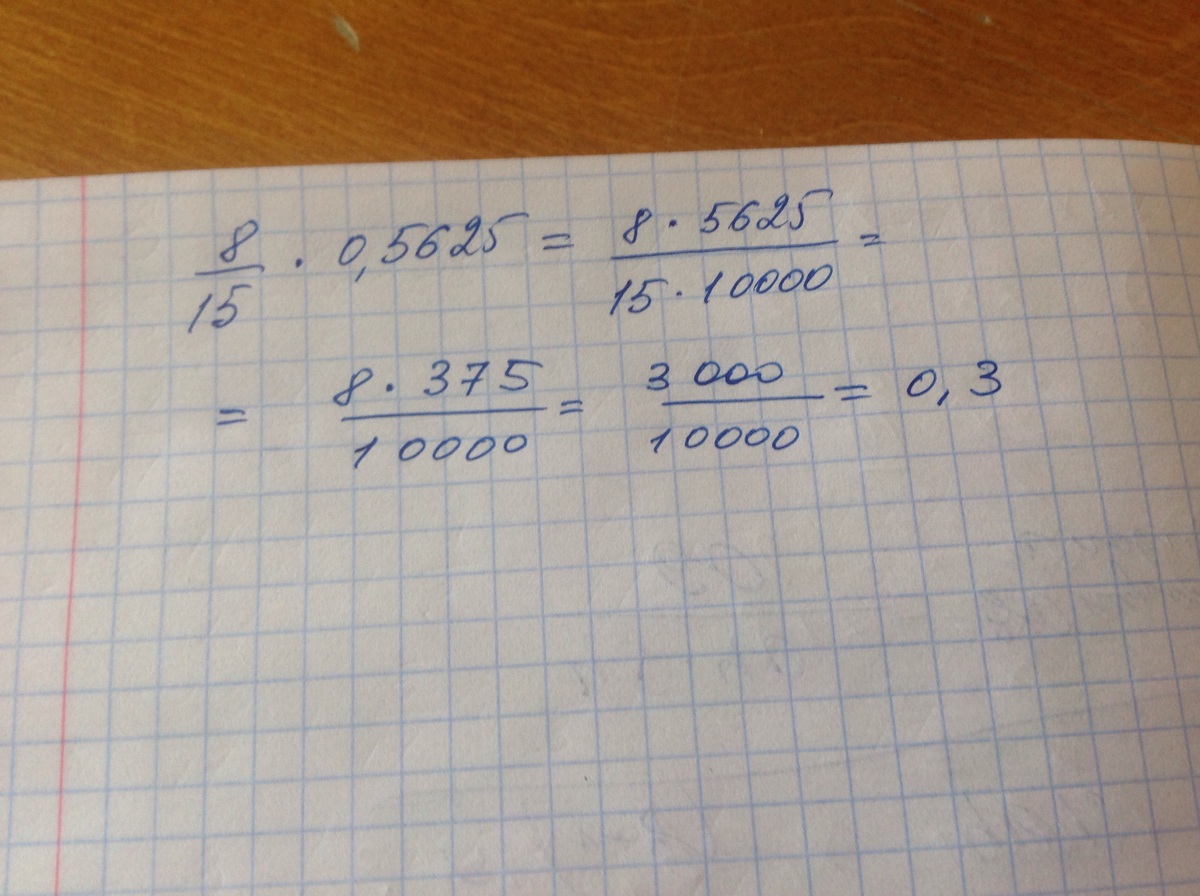 8/15 · 0,5625 = 8 · 5625 / 15 · 10000 =
= 8 · 375 / 10000 = 3000 / 10000 = 0,3